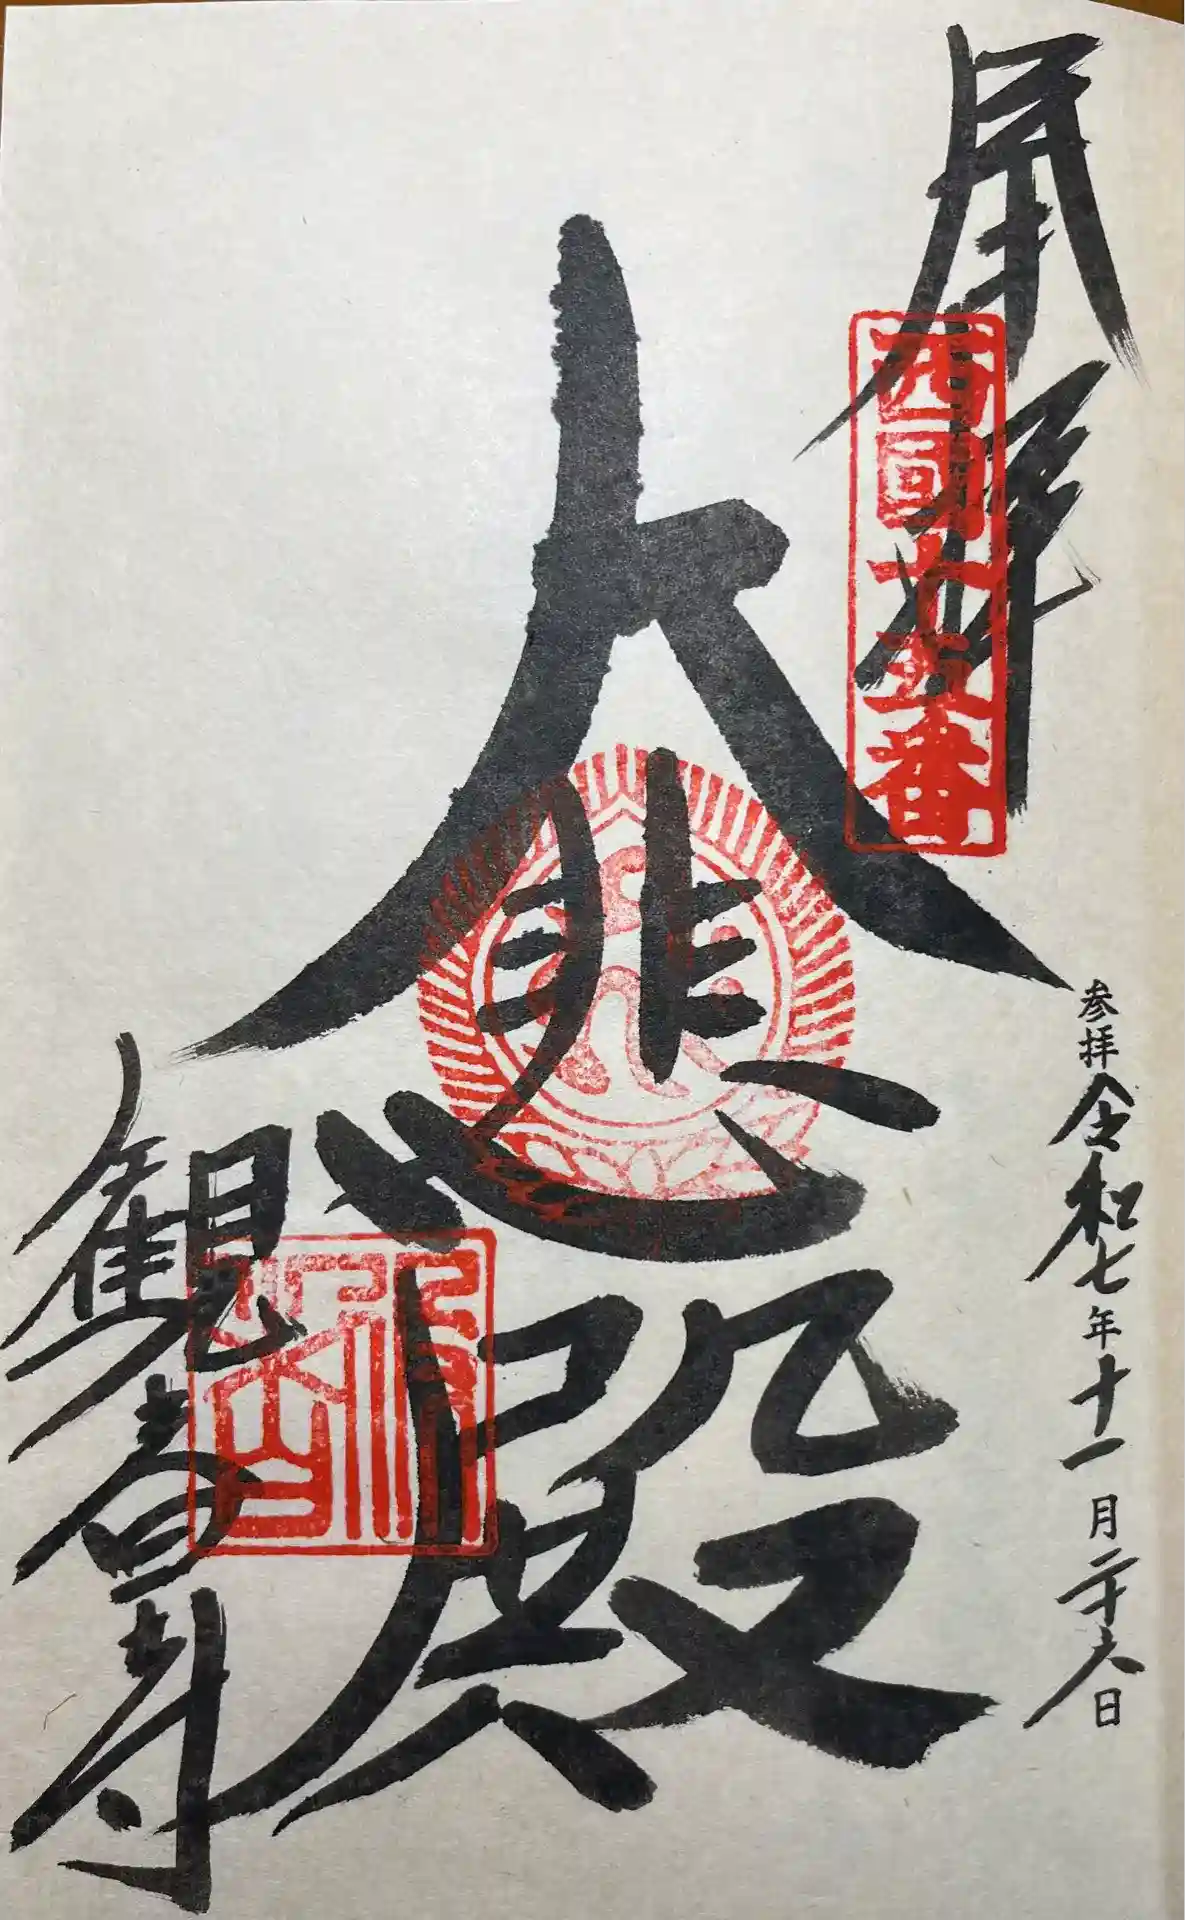 奉拝
西國十五番
参拝 令和七年十一月二十六日
大悲殿
観音寺